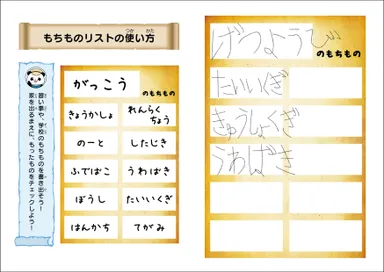 もちものリストの使い方
つか かた
習い事や、学校のもちものを書き出そう！
家を出るまえに、もったものをチェックしよう！
がっこう
のもちもの
きょうかしょ
れんらくちょう
のーと
したじき
ふでばこ
うわばき
ぼうし
たいいくぎ
はんかち
てがみ
げつようび
のもちもの
たいいくぎ
きゅうしょくぎ
うわばき